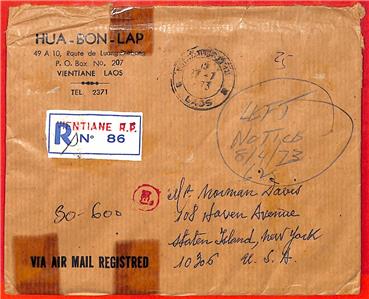 HUA-BON-LAP
49 A 10, Route de Luang-Prabang
P. O. Box No. 207
VIENTIANE LAOS
TEL. 2371
VIENTIANE R.P.
R No 86
LAOS
LEFT
NOTICE
8/4/73
M/t Norman Davis
108 Haven Avenue
Staten Island, New York
10306 U. S. A.
80-600
VIA AIR MAIL REGISTRED